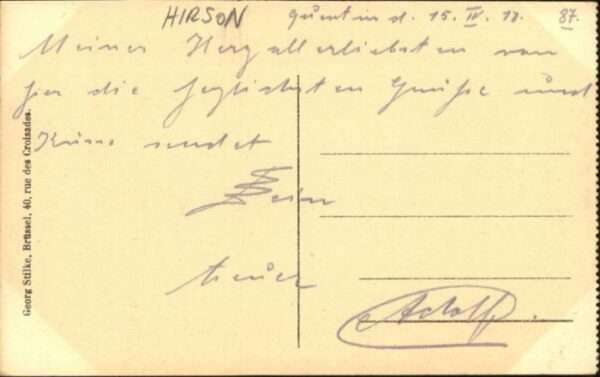 HIRSON
Quentin d. 15. IV. 17.
87.
Meiner Herzallerliebsten von
hier die herzlichsten Grüße und
Küsse sendet
Dein
treuer
Adolf.
Georg Stilke, Brüssel, 40, rue des Croisades.